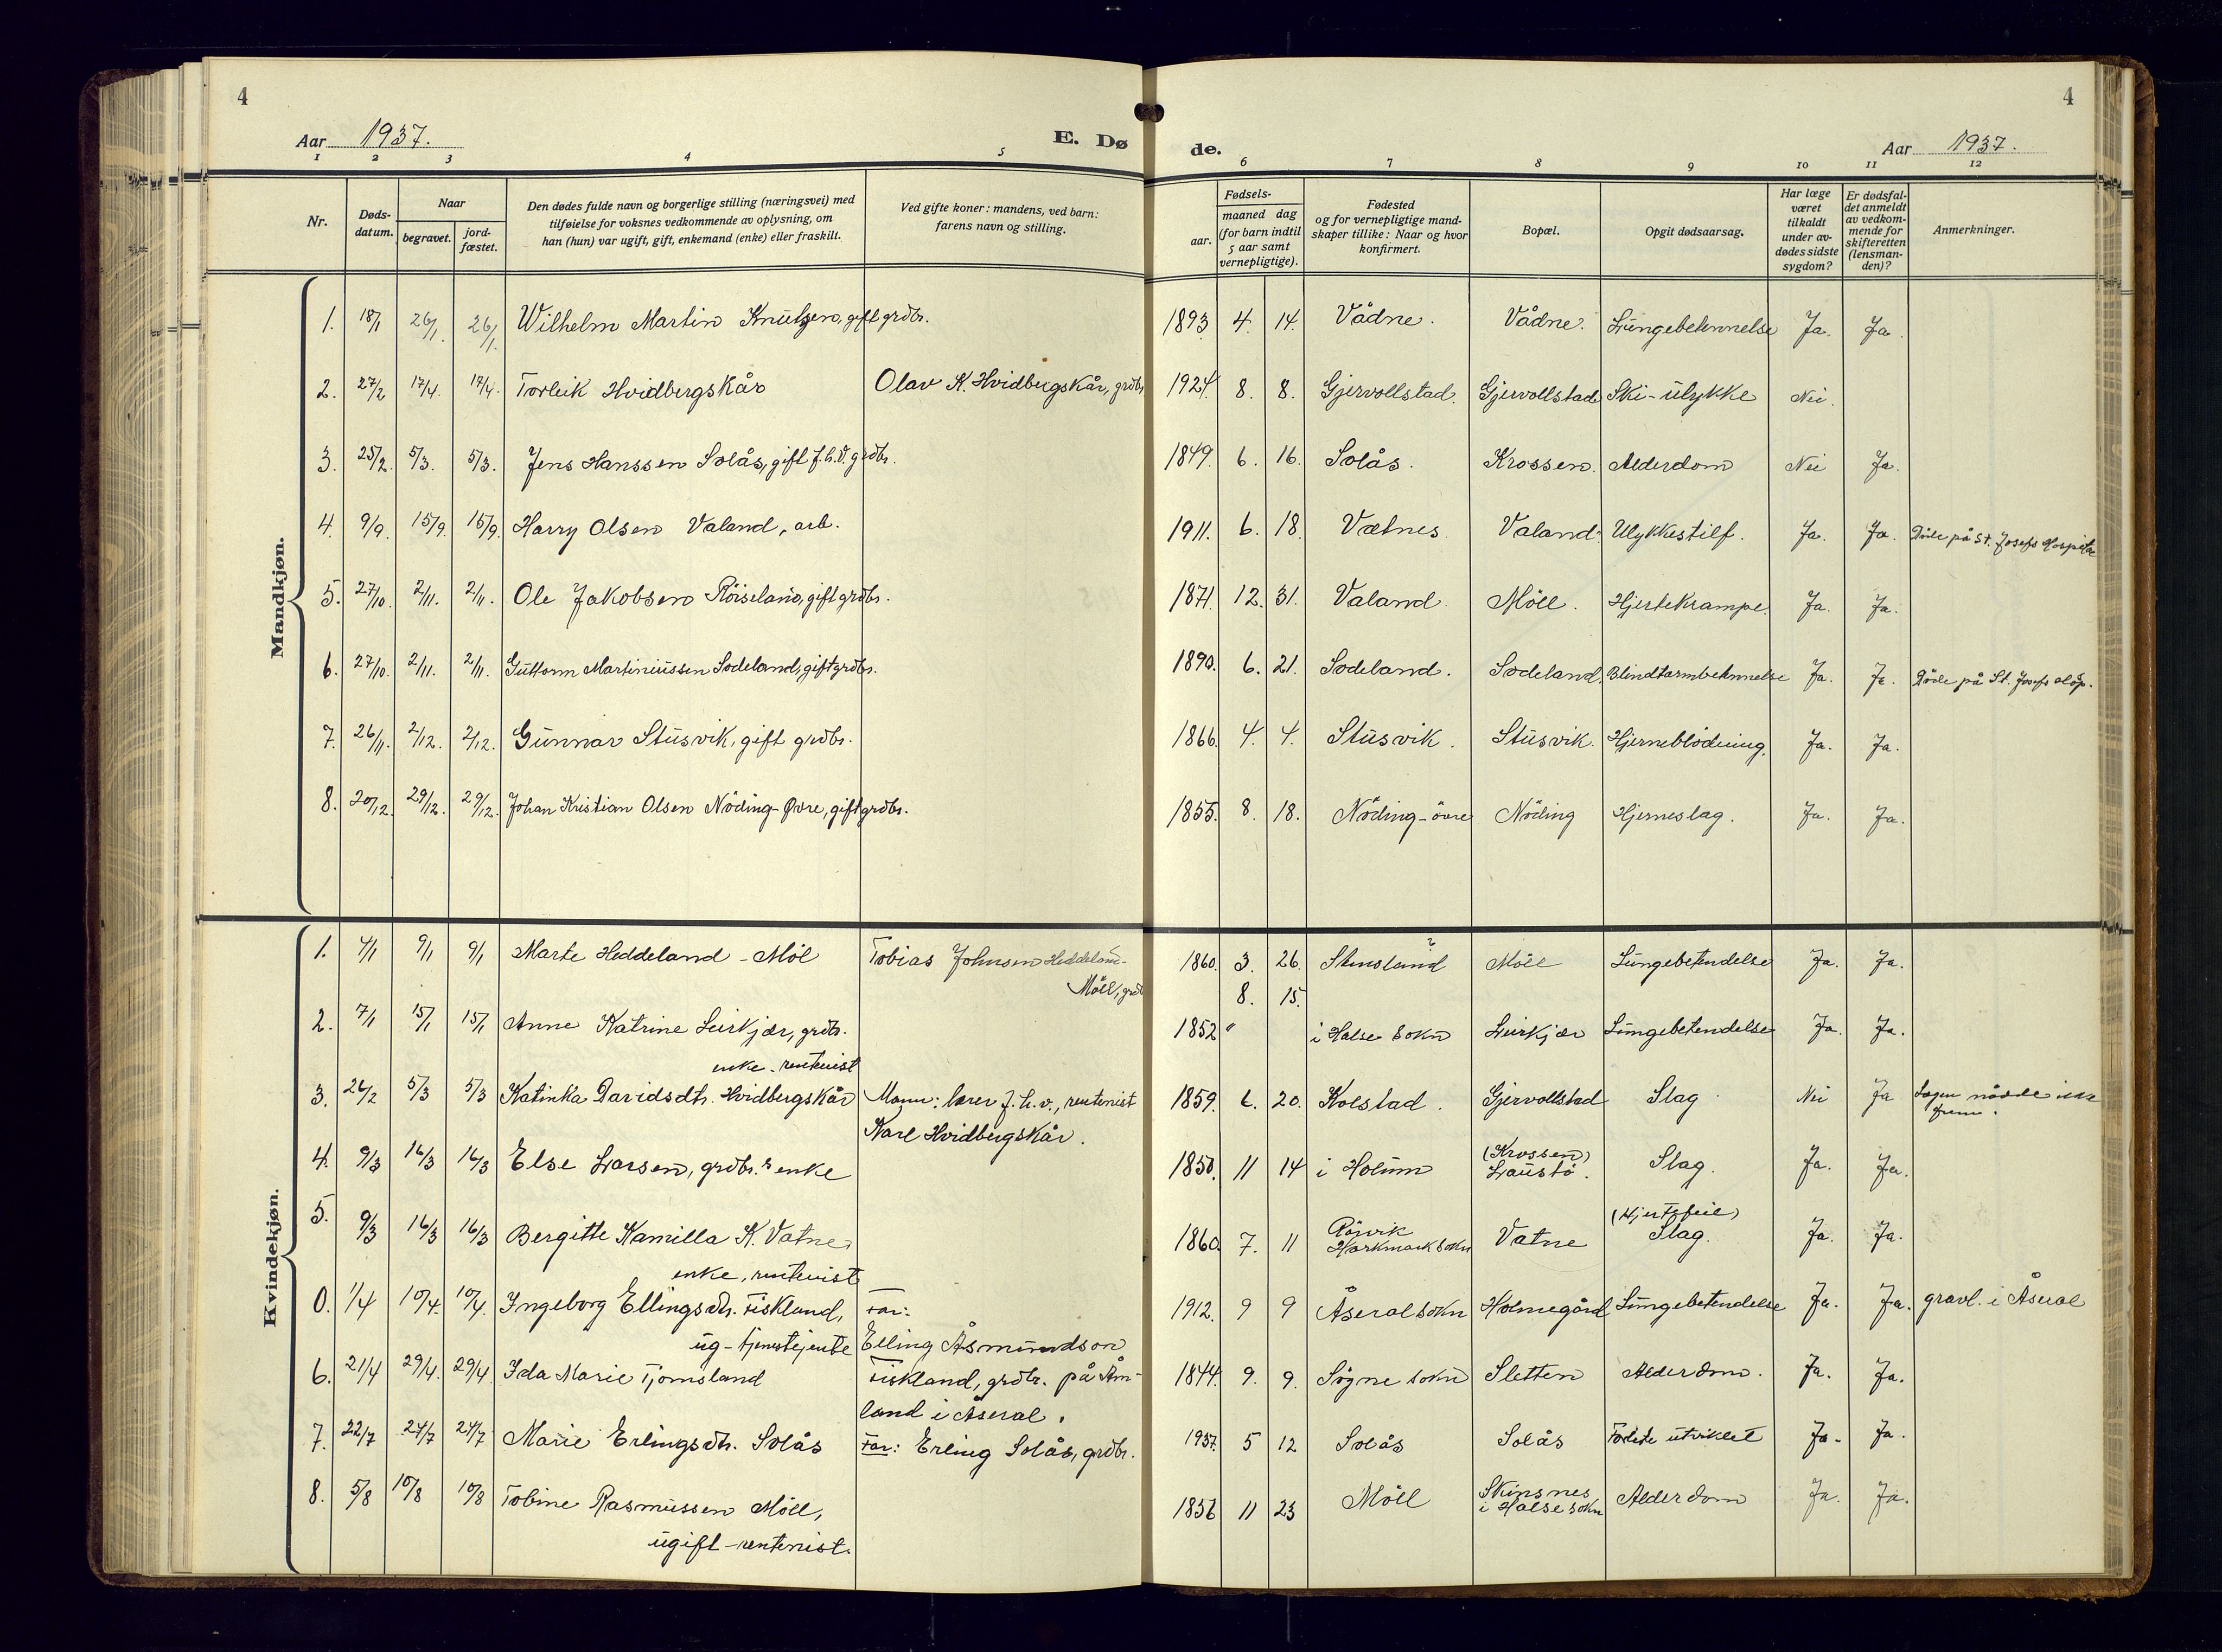 4
4
Aar 1937.
E. Dø
de.
Aar 1937.
1 2 3 4 5 6 7 8 9 10 11 12
Nr.
Døds-
datum.
Naar
begravet.
jord-
fæstet.
Den dødes fulde navn og borgerlige stilling (næringsvei) med
tilføielse for voksnes vedkommende av oplysning, om
han (hun) var ugift, gift, enkemand (enke) eller fraskilt.
Ved gifte koner: mandens, ved barn:
farens navn og stilling.
Fødsels-
aar.
maaned dag
(for barn indtil
5 aar samt
vernepligtige).
Fødested
og for vernepligtige mand-
skaper tillike: Naar og hvor
konfirmert.
Bopæl.
Opgit dødsaarsag.
Har læge
været
tilkaldt
under av-
dødes sidste
sygdom?
Er dødsfal-
det anmeldt
av vedkom-
mende for
skifteretten
(lensman-
den)?
Anmerkninger.
Mandkjøn.
1. 18/1 26/1. 26/1. Wilhelm Martin Knutzen, gift grdbr. 1893 4. 14. Vådne. Vådne. Lungebetennelse Ja. Ja.
2. 27/2 17/4. 17/4. Torleik Hvidbergskår Olav K. Hvidbergskår, grdbr. 1924. 8. 8. Gjervollstad. Gjervollstad Ski-ulykke Nei.
3. 25/2. 5/3. 5/3. Jens Hanssen Solås, gift f.h.v. grdbr. 1849. 6. 16. Solås. Krossen. Alderdom Nei Ja.
4. 9/9. 15/9. 15/9. Harry Olsen Valand, arb. 1911. 6. 18. Vætnes Valand. Ulykkestilf. Ja. Ja. Døde på St. Josefs Hospital
5. 27/10. 2/11. 2/11. Ole Jakobsen Röiseland, gift grdbr. 1871. 12. 31. Valand Möll. Hjertekrampe. Ja. Ja.
6. 27/10. 2/11. 2/11. Guttorm Martiniussen Sodeland, gift grdbr. 1890. 6. 21. Sodeland. Sodeland. Blindtarmbetennelse Ja. Ja. Döde på St. Josefs Hosp.
7. 26/11. 2/12. 2/12. Gunnar Stusvik, gift grdbr. 1866. 4. 4. Stusvik. Stusvik. Hjerneblödning. Ja. Ja.
8. 20/12. 29/12. 29/12. Johan Kristian Olsen Nöding-Øvre, gift grdbr. 1855. 8. 18. Nöding-övre Nöding Hjerneslag. Ja. Ja.
Kvindekjøn.
1. 4/1 9/1 9/1 Marte Heddeland - Möl Tobias Johnsen Heddeland- 1860. 3. 26. Stensland ? Möll Lungebetendelse Ja. Ja.
Möll, grdbr
8. 15.
2. 7/1 15/1 15/1 Anne Katrine Leirkjær, grdbr. 1852 " i Halse sokn Leirkjær Lungebetendelse Ja. Ja.
enke - rentenist
3. 26/2 5/3 5/3 Katinka Davidsdtr. Hvidbergskår Mann: lærer f.h.v., rentenist 1859. 6. 20. Kolstad. Gjervollstad Slag Nei Ja Lægen nådde ikke
frem.
Karl Hvidbergskår.
4. 9/3 16/3 16/3 Else Larsen, grdbr.s enke 1850. 11 14 i Holum (Krossen) Slag. Ja. Ja.
Laustö.
5. 9/3 16/3 16/3 Bergitte Kamilla K. Vatne, 1860. 7. 11 Röjvik Vatne (Hjertefeil) Ja. Ja.
Harkmark sokn Slag.
enke, rentenist
0. 1/4 10/4. 10/4. Ingeborg Ellingsdtr. Fiskland, Far: 1912. 9 9 Åseral sokn Holmegård Lungebetendelse Ja. Ja. gravl. i Åseral
ug - tjenestejente Elling Åsmundson
6. 21/4 29/4. 29/4 Ida Marie Tjomsland Fiskland, grdbr. på Åm- 1844. 9. 9. Sögne sokn Sletten Alderdom. Ja. Ja.
land i Åseral.
7. 22/7 24/7 24/7 Marie Erlingsdtr. Solås Far: Erling Solås, grdbr. 1937. 5 12 Solås Solås utviklet Ja. Ja.
8. 5/8 10/8 10/8 Tobine Rasmussen Möll, 1856 11 23 Möll Skinsnes Alderdom Ja. Ja.
i Halse sokn
ugift - rentenist.